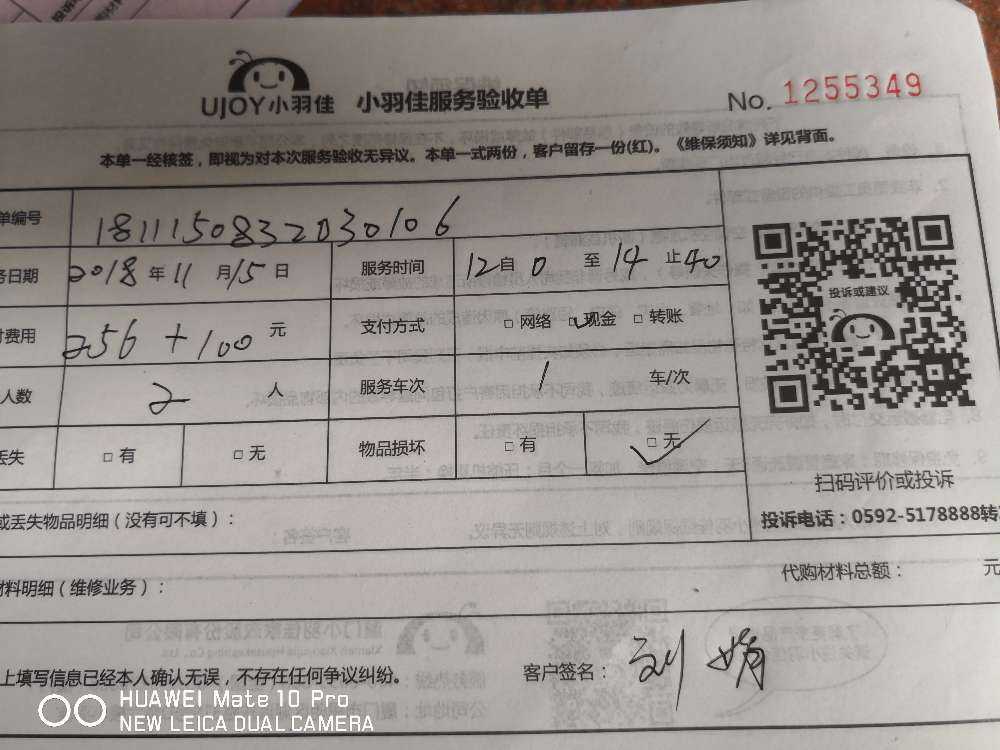 UJOY小羽佳 小羽佳服务验收单 No. 1255349
本单一经核签，即视为对本次服务验收无异议。本单一式两份，客户留存一份(红)。《维保须知》详见背面。
单编号 18111508832030106
务日期 2018 年 11 月 15 日 服务时间 12 自 0 至 14 止 40
付费用 256 + 100 元 支付方式 □ 网络 □ 现金 □ 转账
人数 2 人 服务车次 1 车/次
丢失 □ 有 □ 无 物品损坏 □ 有 □ 无
投诉或建议
扫码评价或投诉
投诉电话：0592-5178888转
或丢失物品明细（没有可不填）：
材料明细（维修业务）： 代购材料总额： 元
上填写信息已经本人确认无误，不存在任何争议纠纷。 客户签名： 刘婧
HUAWEI Mate 10 Pro
NEW LEICA DUAL CAMERA